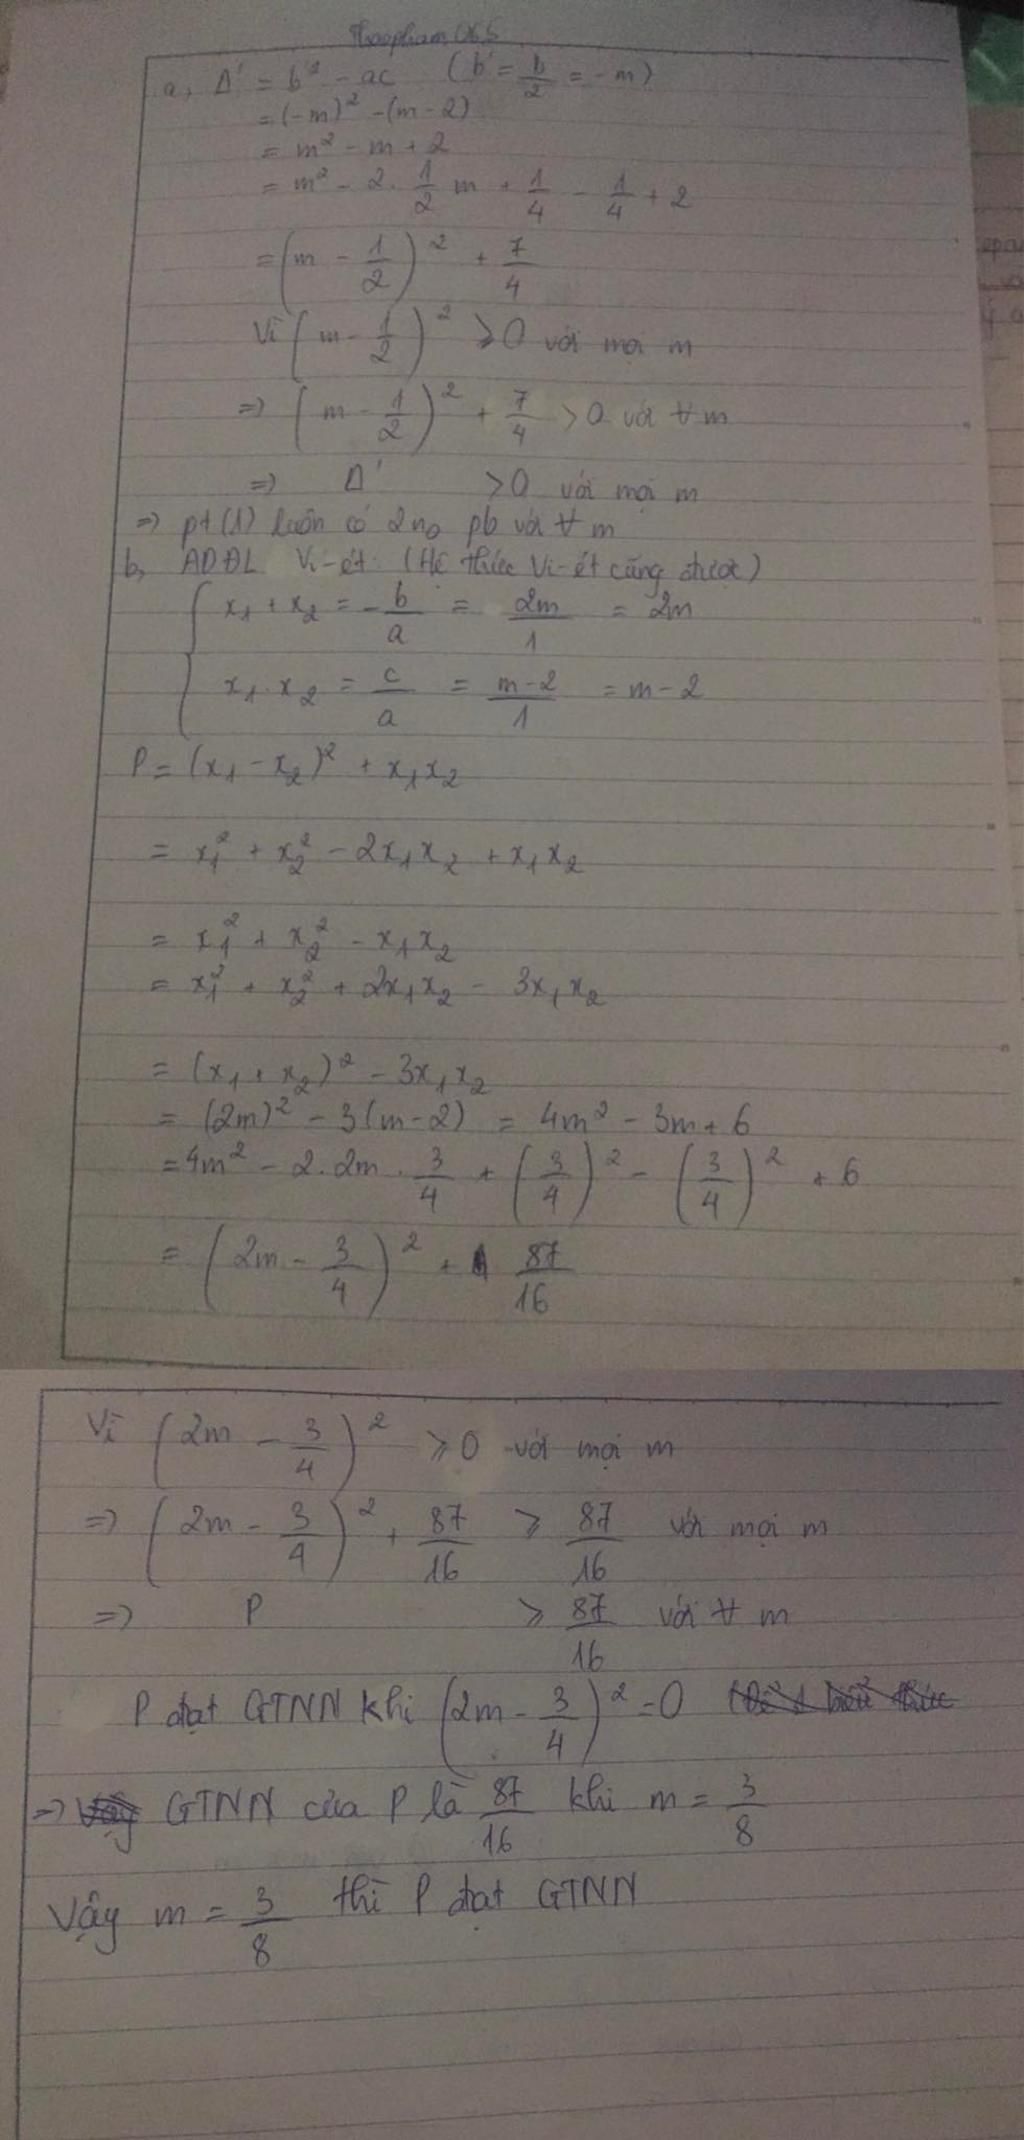 Thaopham065
a, Δ' = b'² - ac (b' = b/2 = -m)
= (-m)² - (m - 2)
= m² - m + 2
= m² - 2. 1/2 m + 1/4 - 1/4 + 2
= (m - 1/2)² + 7/4
Vì (m - 1/2)² ⩾ 0 với mọi m
=> (m - 1/2)² + 7/4 > 0 với ∀ m
=> Δ' > 0 với mọi m
=> pt (1) luôn có 2 n₀ pb với ∀ m
b, ADĐL Vi-ét (Hệ thức Vi-ét cũng được)
{ x₁ + x₂ = -b/a = 2m/1 = 2m
x₁ . x₂ = c/a = m-2/1 = m - 2
P = (x₁ - x₂)² + x₁x₂
= x₁² + x₂² - 2x₁x₂ + x₁x₂
= x₁² + x₂² - x₁x₂
= x₁² + x₂² + 2x₁x₂ - 3x₁x₂
= (x₁ + x₂)² - 3x₁x₂
= (2m)² - 3(m-2) = 4m² - 3m + 6
= 4m² - 2.2m . 3/4 + (3/4)² - (3/4)² + 6
= (2m - 3/4)² + 87/16
Vì (2m - 3/4)² ⩾ 0 với mọi m
=> (2m - 3/4)² + 87/16 ⩾ 87/16 với mọi m
=> P ⩾ 87/16 với ∀ m
P đạt GTNN khi (2m - 3/4)² = 0
=> GTNN của P là 87/16 khi m = 3/8
Vậy m = 3/8 thì P đạt GTNN